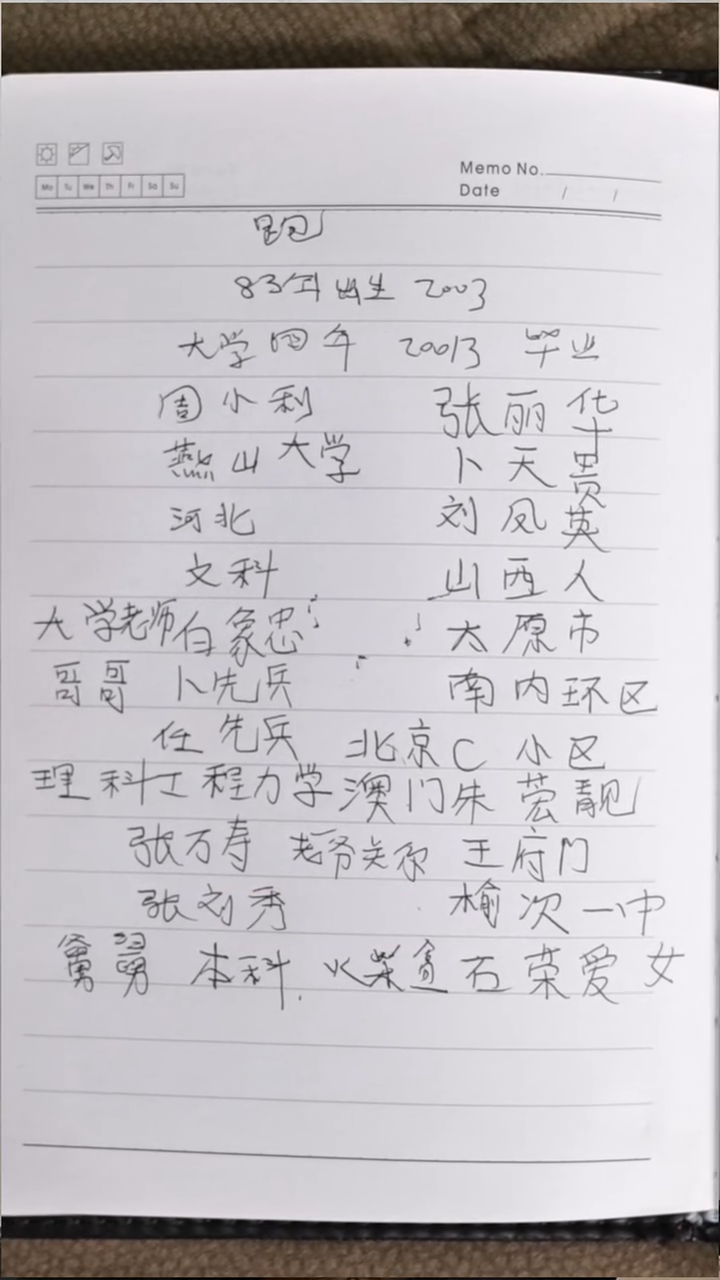 Mo Tu We Th Fr Sa Su
Memo No.
Date / /
跑
83年出生 2003
大学四年 20013 毕业
周小利 张丽华
燕山大学 卜天贵
河北 刘凤英
文科 山西人
大学老师白象忠 太原市
哥哥 卜先兵 南内环区
任先兵 北京C小区
理科工程力学 澳门朱 靓
张万寿 关系 王府门
张刘秀 榆次一中
本科. 火柴 石荣爱女